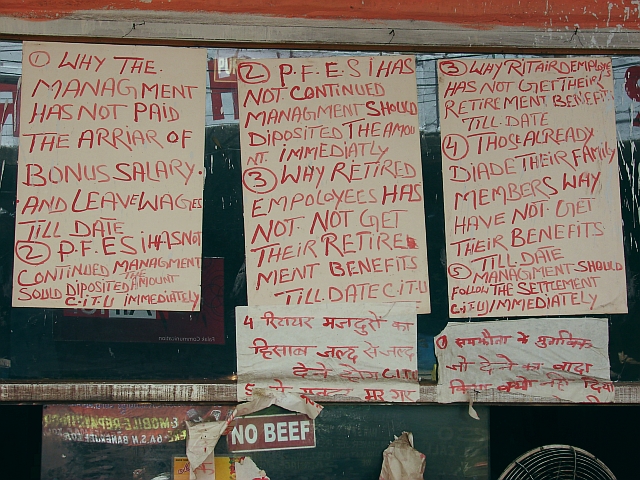 ① WHY THE
MANAGMENT
HAS NOT PAID
THE ARRIAR OF
BONUS SALARY.
AND LEAVE WAGES
TILL DATE
② P.F.E S I HAS NOT
CONTINUED MANAGMENT
SOULD DIPOSITED THE AMOUNT
C.I.T.U IMMEDIATELY
② P.F.E.S I HAS
NOT CONTINUED
MANAGMENT SHOULD
DIPOSITED THE AMOU
NT. IMMEDIATLY
③ WHY RETIRED
EMPOLOYEES HAS
NOT. NOT GET
THEIR RETIRE
MENT BENEFITS
TILL DATE C.I.T.U
③ WHY RITAIRD EMPLOYES
HAS NOT GET THEIR
RETIREMENT BENEFIT
TILL DATE
④ THOSE ALREADY
DIADE THEIR FAMILY
MEMBERS WHY
HAVE NOT GET
THEIR BENEFITS
TILL DATE
⑤ MANAGMENT SHOULD
FOLLOW THE SETTLEMENT
C.I.T.U IMMEDIATELY
4 रिटायर मजदुरों का
हिसाब जल्द से जल्द
देना होगा C.I.T.U
5 मर गए
① समझौता के मुताबिक
जो देने का वादा
किया नहीं दिया
Falak Communication
E-MOBILE REPAIRING
NO BEEF